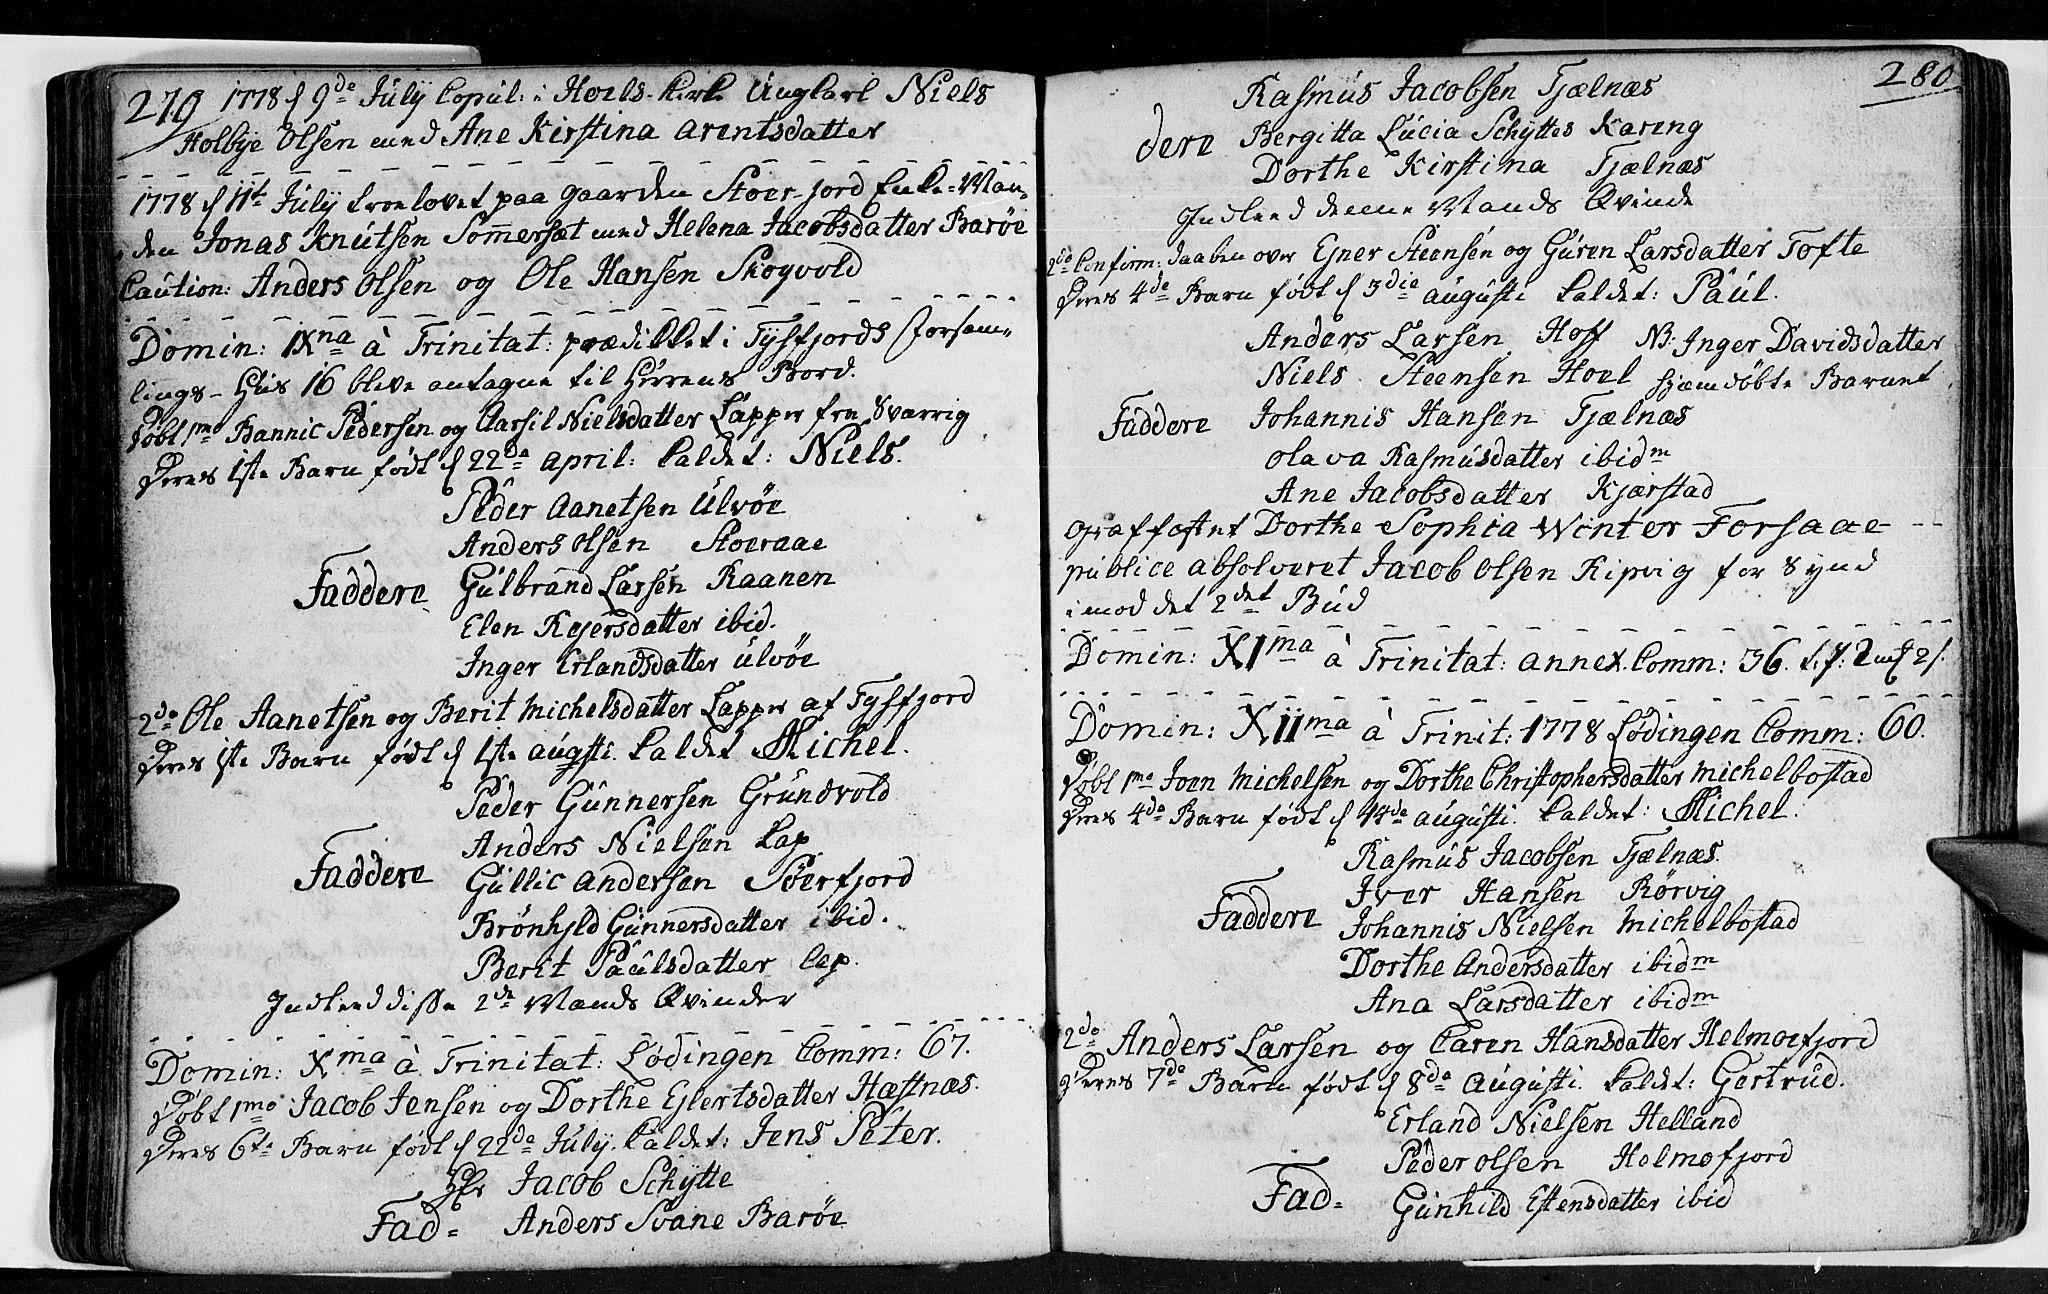 279 1778 d 9de July Copul: i Hoels-Kirke Ungkarl Niels
Holbye Olsen med Ane Kirstina Arentsdatter
1778 d 11te July troelovet paa gaarden Stoer-fjord Enke-Man-
den Jonas Knutsen Sommersæt med Helena Jacobsdatter Barøe
Caution: Anders Olsen og Ole Hansen Skogvold
Domin: IXna à Trinitat: prædikket i Tysfjords forsam-
lings-Hus 16 bleve antagne til HErrens Bord.
døbt 1mo Bannic Pedersen og Aarsil Nielsdatter Lapper fra Sverrig
Deres 1ste Barn født d 22de April: kaldet: Niels.
Peder Aanetsen Ulvøe
Anders Olsen Stoeraae
Faddere Gulbrand Larsen Raanen
Elen Kejersdatter ibid.
Inger Erlandsdatter Ulvøe
2do Ole Aanetsen og Berit Michelsdatter Lapper af Tysfjord
Deres 1ste Barn født d 1ste Augsti kaldet Michel.
Peder Gunnersen Grundvold
Anders Nielsen Lap
Faddere Gullic Andersen Søerfjord
Brønhyld Gunnersdatter ibid.
Berit Paulsdatter Lap.
Indleed disse 2de Mands Qvinder
Domin: Xma à Trinitat: Lødingen Comm: 67.
døbt 1mo Jacob Jensen og Dorthe Ejlertsdatter Hæstnæs.
Deres 6te Barn født d 22de July. kaldet: Jens Peter.
Hr Jacob Schytte
Fad= Anders Svane Barøe
280
Rasmus Jacobsen Tjælnæs
dere Bergitta Lucia Schyttes Karing
Dorthe Kirstina Tjælnæs
Indleed denne Mands Qvinde
2do Confirm: daaben over Ejner Steensen og Guren Larsdatter Tofte
Deres 4de Barn født d 3die Augusti kaldet: Paul.
Anders Larsen Hoff NB: Inger Davidsdatter
Niels Steensen Hoel hjemdøbte Barnet.
Faddere Johannis Hansen Tjælnæs
Olava Rasmusdatter ibidm
Ane Jacobsdatter Kjærstad
Graffæstet Dorthe Sophia Winter Forsaae
publice absolveret Jacob Olsen Ripvig for Synd
imod det 2det Bud
Domin: XIma à Trinitat: annex. Comm: 36.
Domin: XIIma à Trinit: 1778 Lødingen Comm: 60.
døbt 1mo Joen Michelsen og Dorthe Christophersdatter Michelbostad
Deres 4de Barn født d 14de Augusti. kaldet: Michel.
Rasmus Jacobsen Tjælnæs.
Iver Hansen Rørvig
Faddere Johannis Nielsen Michelbostad
Dorthe Andersdatter ibidm
Ana Larsdatter ibidm
2do Anders Larsen og Caren Hansdatter Helmoefjord
Deres 7de Barn født d 8de Augusti. kaldet: Gertrud.
Erland Nielsen Helland
Peder Olsen Helmofjord
Fad= Gunhild Estensdatter ibid